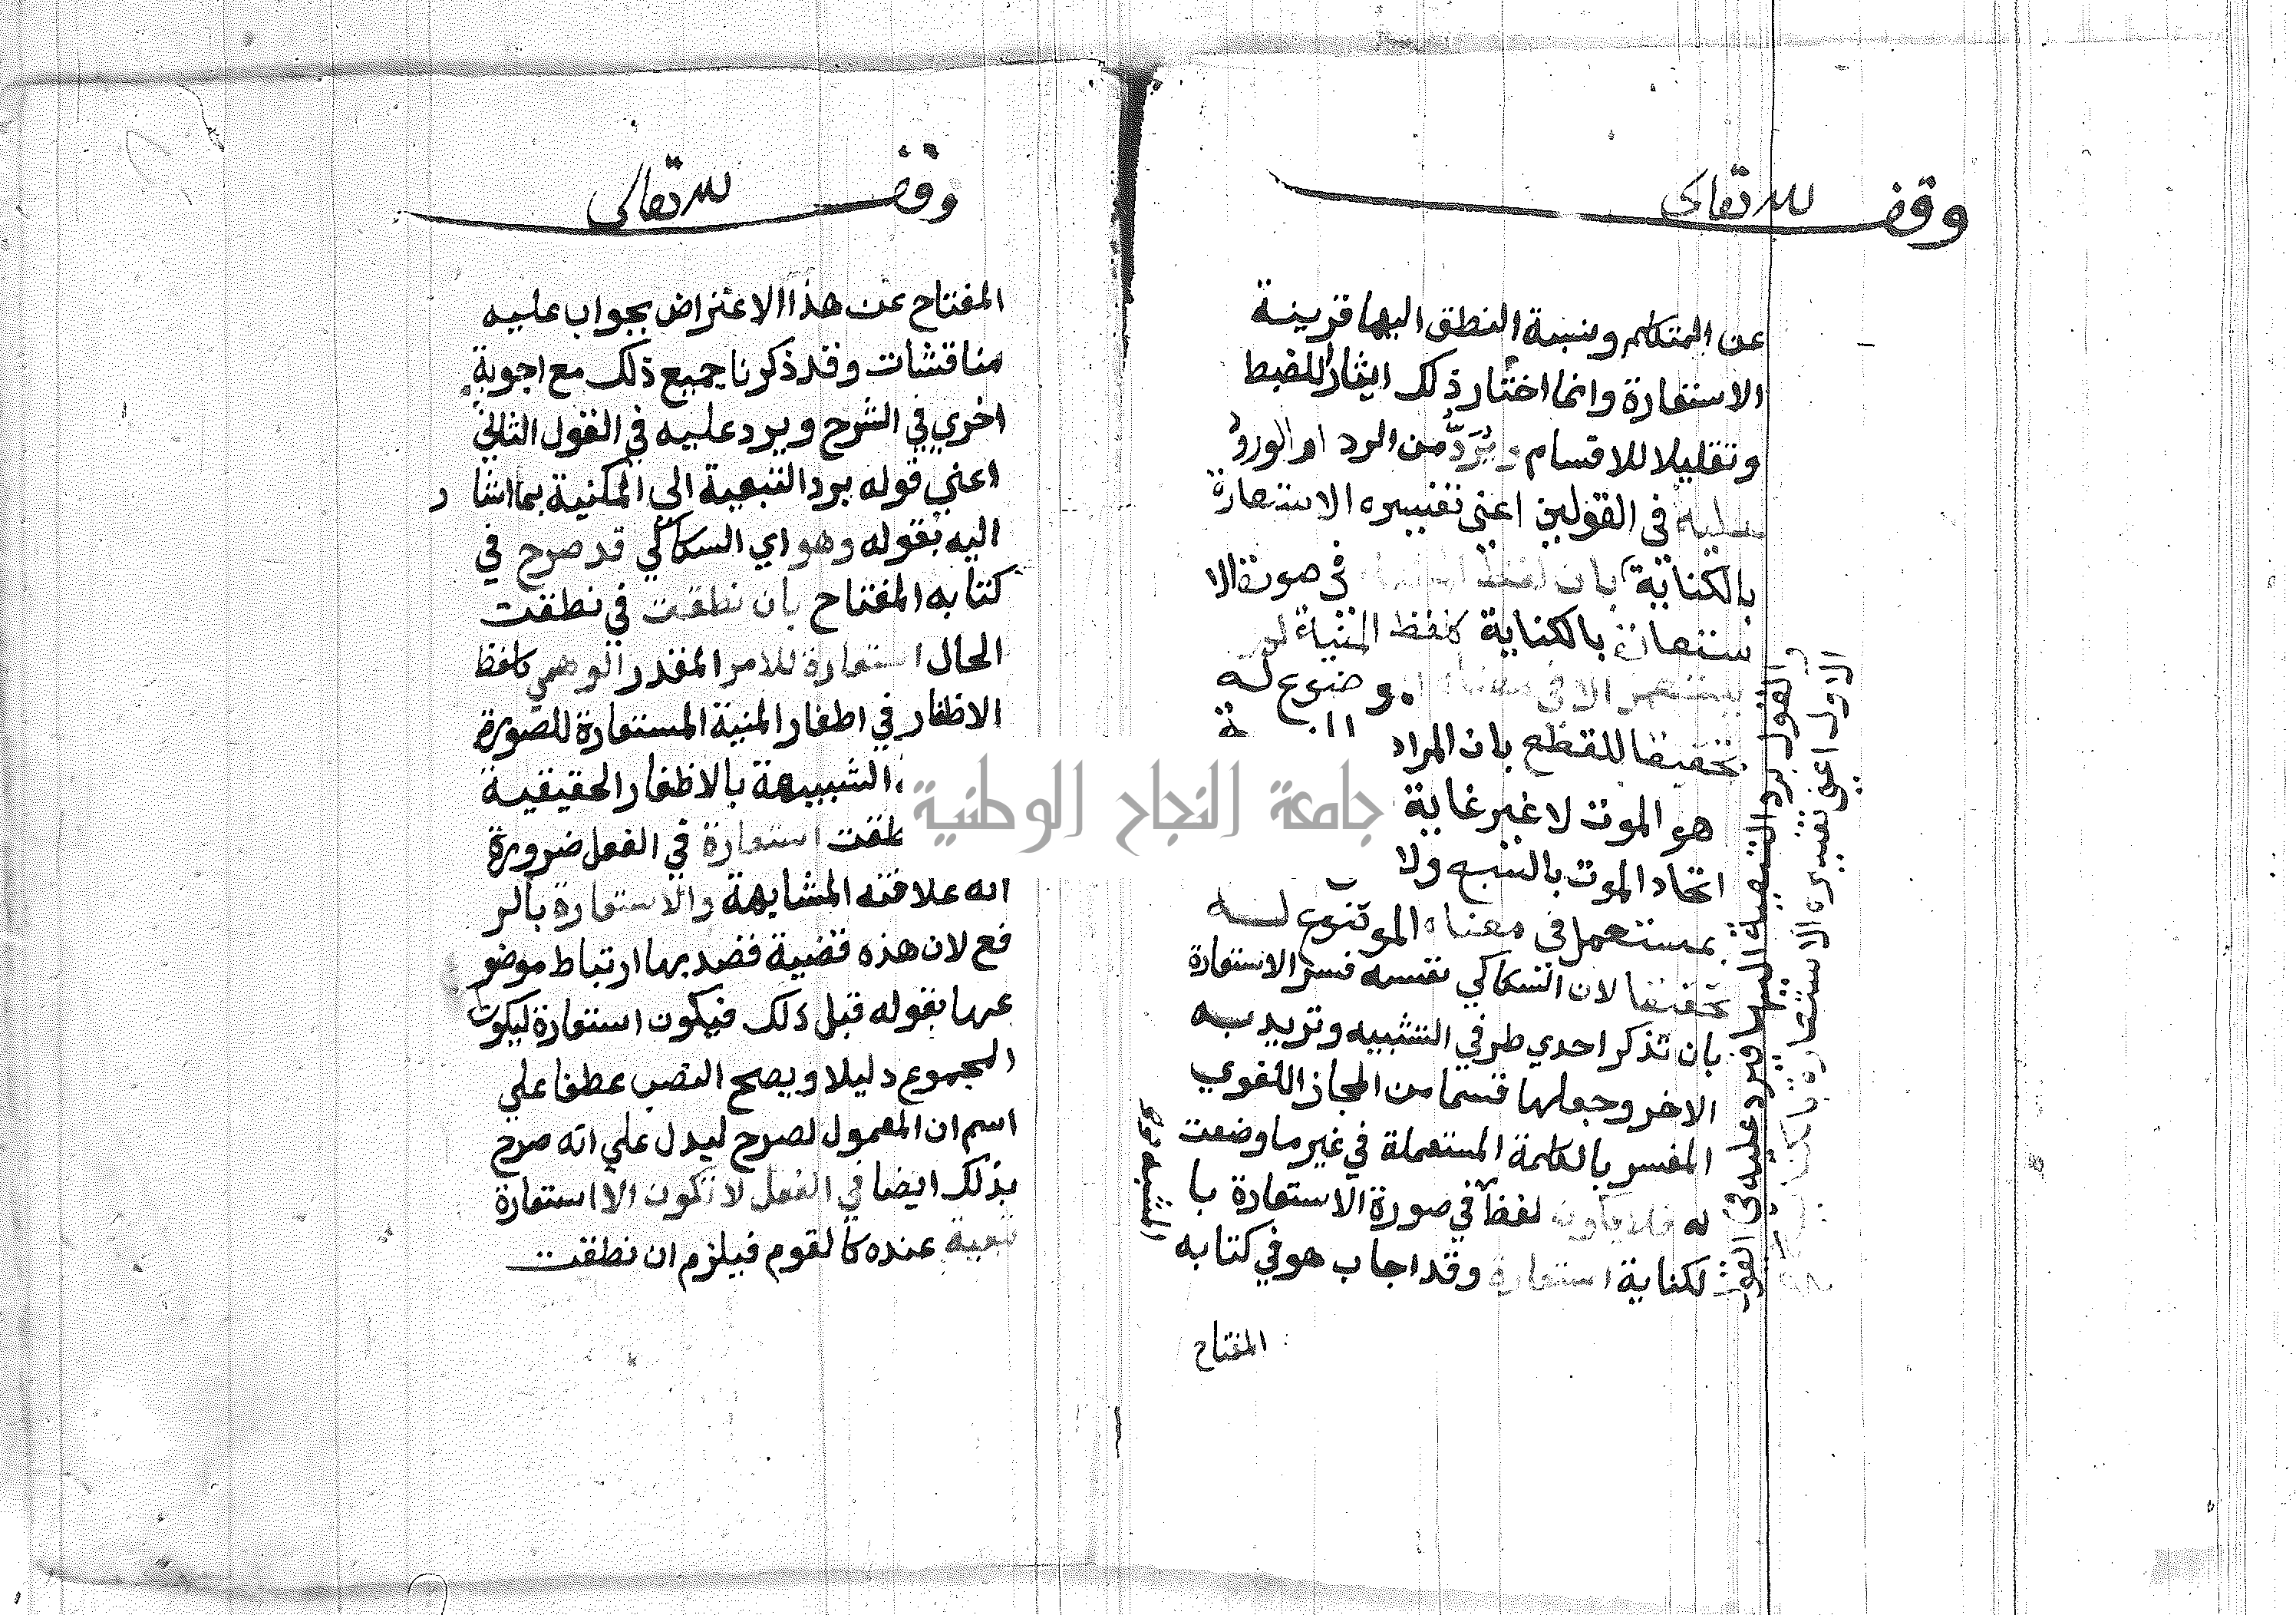 وقف لله تعالى
عن المتكلم ونسبة النطق اليها قرينة
الاستعارة وانما اختار ذلك ايثارا للضبط
وتقليلا للاقسام ويرد من الرد او الورود
عليه في القولين اعني تفسيره الاستعارة
بالكناية بان لفظ في صورة الا
ستعارة بالكناية كلفظ المنية لم
يستعمل الا في معناه الموضوع له
تحقيقا للقطع بان المراد
هو الموت لا غير غاية
اتحاد الموت بالسبع ولا
مستعمل في معناه الموضوع له
تحقيقا لان السكاكي نفسه فسر الاستعارة
بان تذكر احدي طرفي التشبيه وتريد به
الاخر وجعلها قسما من المجاز اللغوي
المفسر بالكلمة المستعملة في غير ما وضعت
له فلا يكون لفظ في صورة الاستعارة با
لكناية استعارة وقد اجاب هو في كتابه
المفتاح
القول برد التبعية اليها فيرد عليه في القول
الاول اعني تفسيره الاستعارة بالكنا
المشبه
وقف لله تعالى
المفتاح عن هذا الاعتراض بجواب عليه
مناقشات وقد ذكرنا جميع ذلك مع اجوبة
اخري في الشرح ويرد عليه في القول الثاني
اعني قوله برد التبعية الي المكنية بما اشار
اليه بقوله وهو اي السكاكي قد صرح في
كتابه المفتاح بان نطقت في نطقت
الحال استعارة للامر المقدر الوهمي كلفظ
الاظفار في اظفار المنية المستعارة للصورة
الشبيهة بالاظفار الحقيقية
طقت استعارة في الفعل ضرورة
انه علاقته المشابهة والاستعارة بالر
فع لان هذه قضية قصد بها ارتباط موضو
عها بقوله قبل ذلك فيكون استعارة ليكون
المجموع دليلا ويصح النصب عطفا علي
اسم ان المعمول لصرح ليدل علي انه صرح
بذلك ايضا في الفعل لا تكون الا استعارة
تبعية عنده كالقوم فيلزم ان نطقت
جامعة النجاح الوطنية